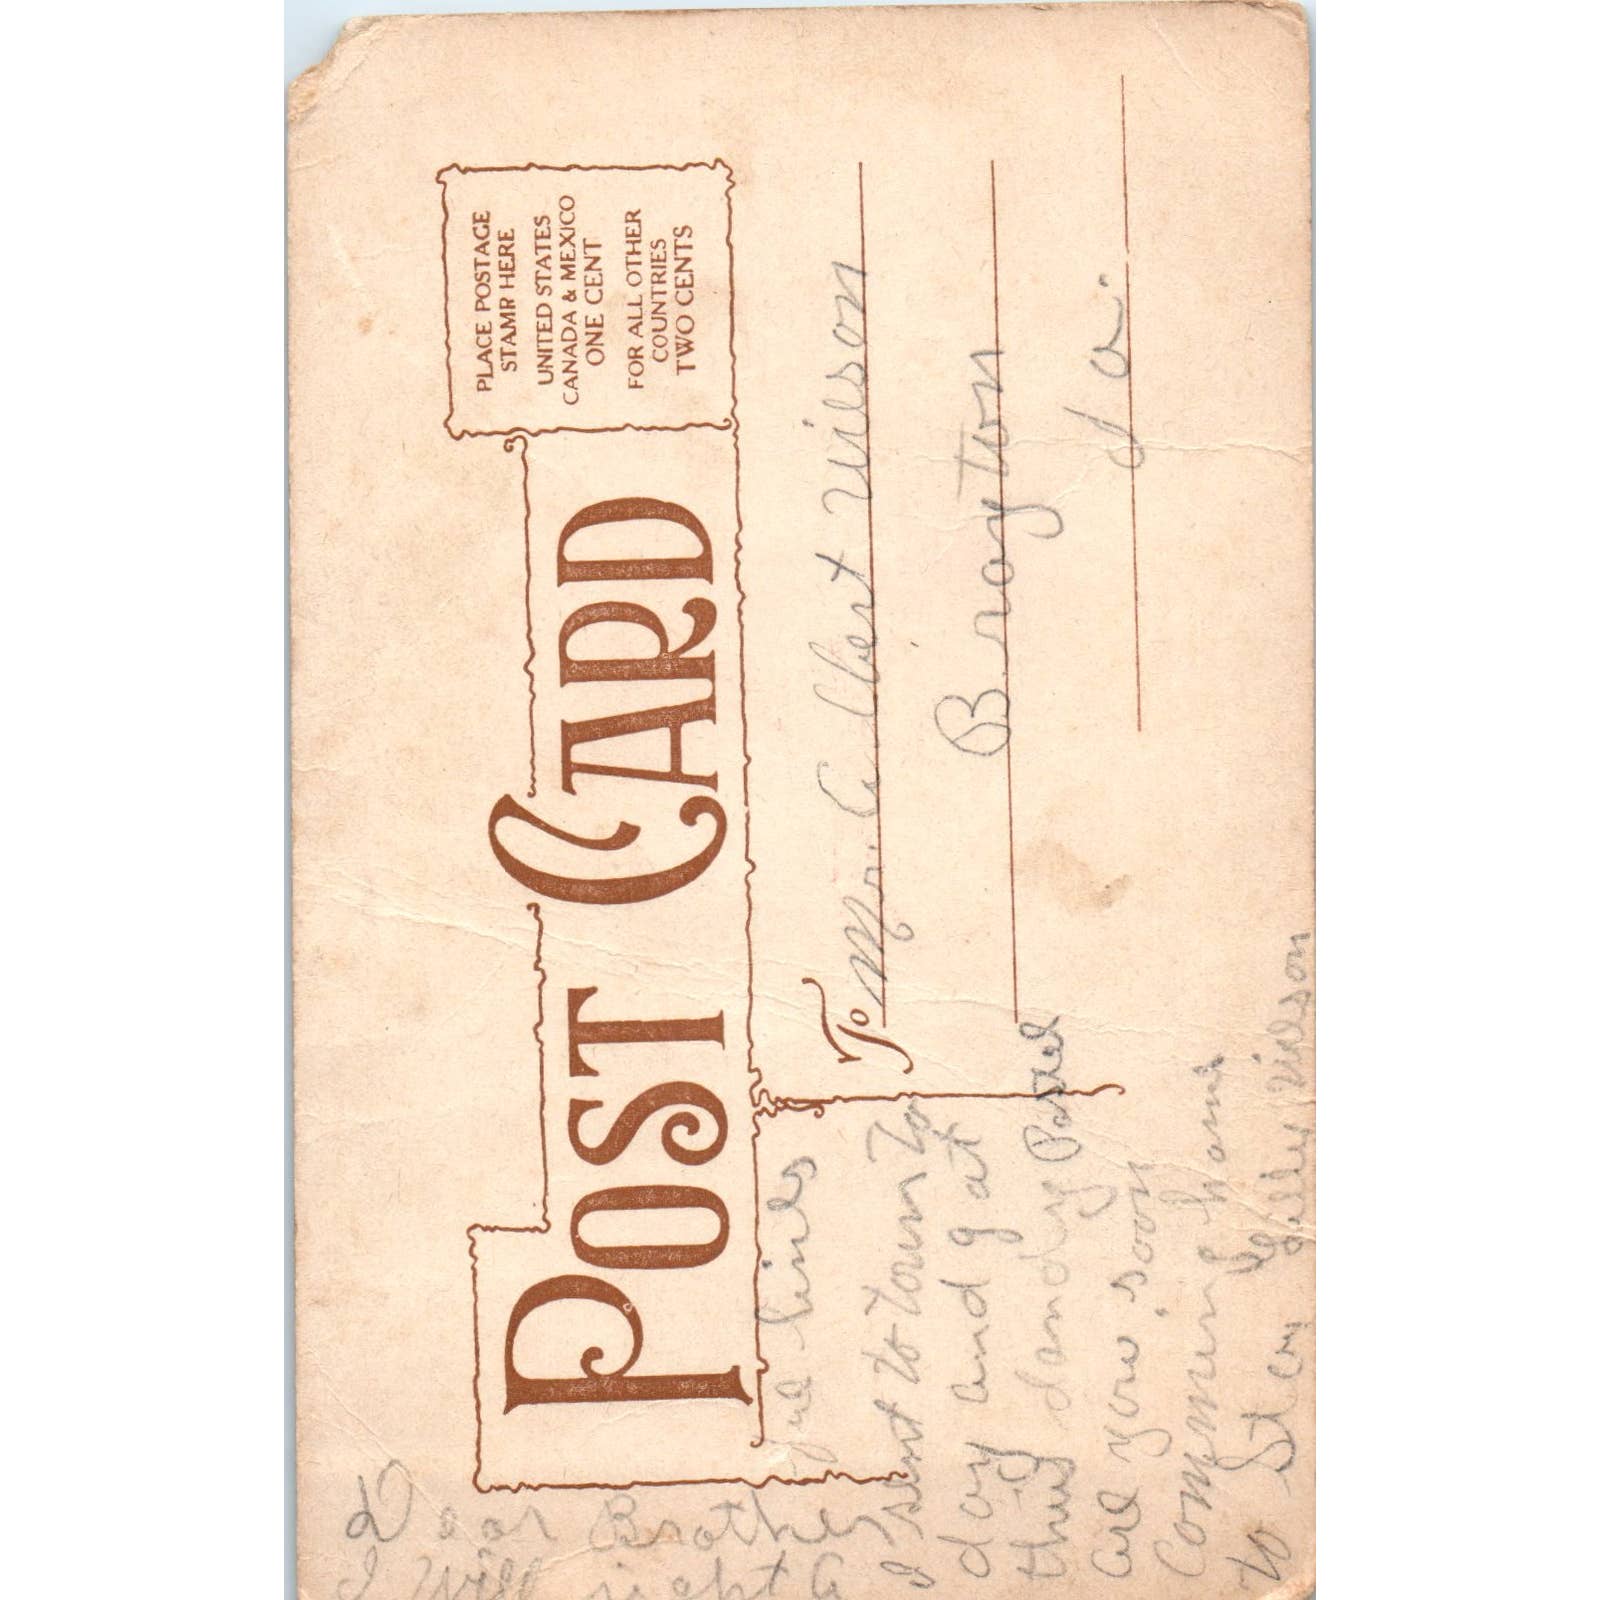 POST CARD
PLACE POSTAGE
STAMP HERE
UNITED STATES
CANADA & MEXICO
ONE CENT
FOR ALL OTHER
COUNTRIES
TWO CENTS
To
Mr. Albert Wilson
Brayton
Ia.
Dear Brother
I will right a
few lines
I sent to town to
day and gat
this dandy Postel
are you soon
Comming home
to Stay
Wilson